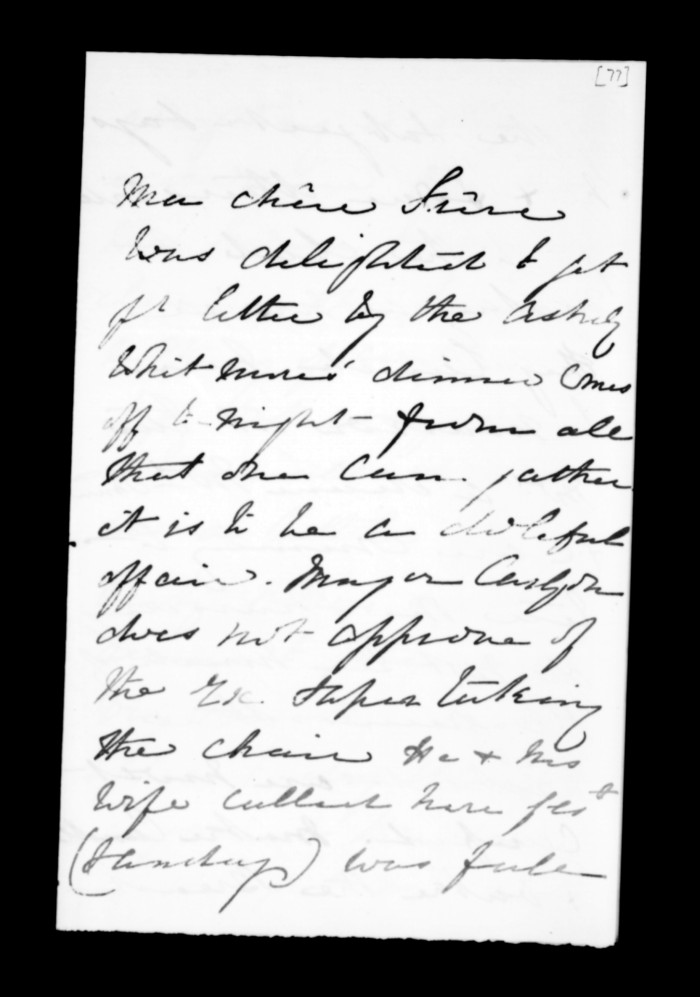 [77]
Ma chère Sûre
Was delighted to get
yr letter by the Ashley
Whitmores' dinner comes
off to-night from all
that one can gather
it is to be a doleful
affair. Major Carlyon
does not approve of
the Ex. Super taking
the chair He & his
wife called here yesd
(Sunday) was full